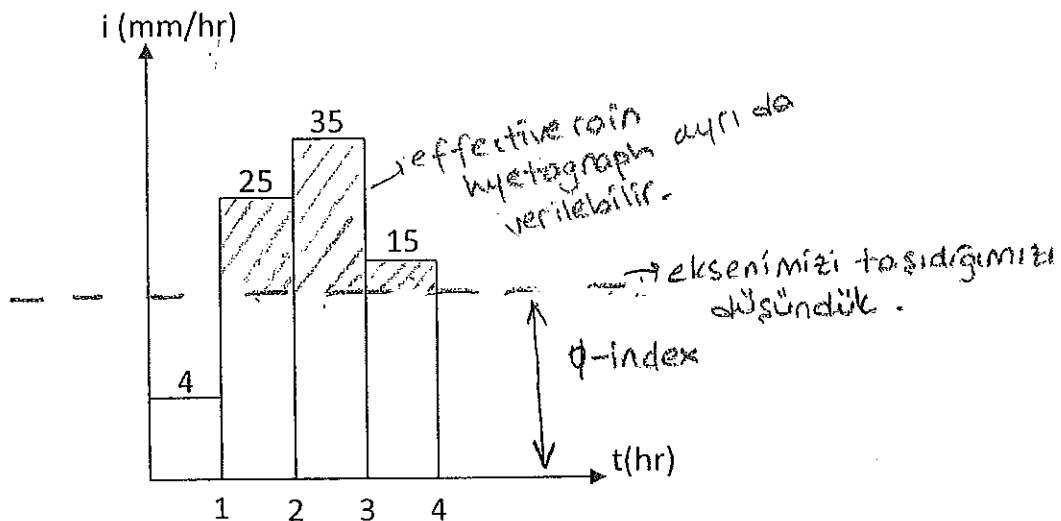 i (mm/hr)
35
25
15
4
→effective rain
hyetograph ayrı da
verilebilir.
→ eksenimizi taşıdığımızı
düşündük.
φ-index
t(hr)
1 2 3 4